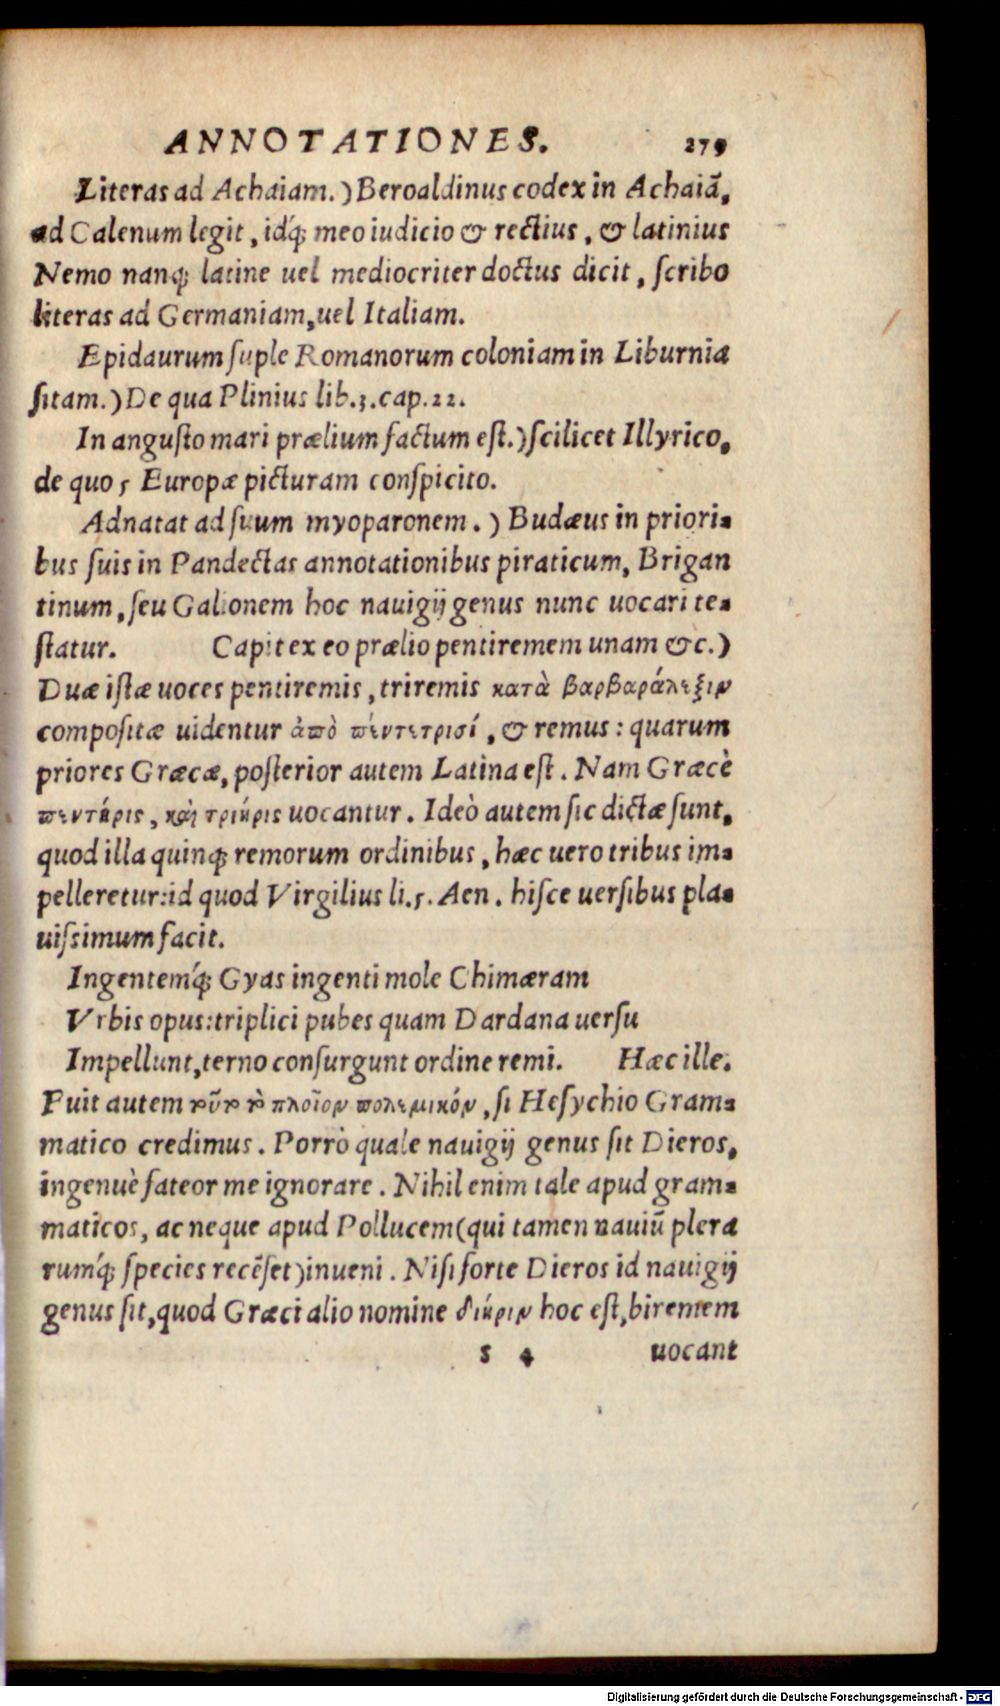 ANNOTATIONES. 279
Literas ad Achaiam.) Beroaldinus codex in Achaiã,
ad Calenum legit, idq́; meo iudicio & rectius, & latinius
Nemo nanq; latine uel mediocriter doctus dicit, ſcribo
literas ad Germaniam, uel Italiam.
Epidaurum ſuple Romanorum coloniam in Liburnia
ſitam.) De qua Plinius lib.3.cap.22.
In anguſto mari prælium factum eſt.) ſcilicet Illyrico,
de quo 5 Europæ picturam conſpicito.
Adnatat ad ſuum myoparonem.) Budæus in priori-
bus ſuis in Pandectas annotationibus piraticum, Brigan
tinum, ſeu Galionem hoc nauigij genus nunc uocari te-
ſtatur. Capit ex eo prælio pentiremem unam &c.)
Duæ iſtæ uoces pentiremis, triremis κατὰ βαρβαράλεξιν
compoſitæ uidentur ἀπὸ πέντετρισί, & remus: quarum
priores Græcæ, poſterior autem Latina eſt. Nam Græcè
πεντήρις, καὶ τριήρις uocantur. Ideò autem ſic dictæ ſunt,
quod illa quinq; remorum ordinibus, hæc uero tribus im-
pelleretur: id quod Virgilius li.5. Aen. hiſce uerſibus pla-
uiſsimum facit.
Ingentemq́; Gyas ingenti mole Chimæram
Vrbis opus: triplici pubes quam Dardana uerſu
Impellunt, terno conſurgunt ordine remi. Hæc ille.
Fuit autem πλοῖον πολεμικόν, ſi Heſychio Gram-
matico credimus. Porrò quale nauigij genus ſit Dieros,
ingenuè fateor me ignorare. Nihil enim tale apud gram-
maticos, ac neque apud Pollucem (qui tamen nauiũ plera
rumq́; ſpecies recẽſet) inueni. Niſi forte Dieros id nauigij
genus ſit, quod Græci alio nomine διήριν hoc eſt, biremem
s 4 uocant
Digitalisierung gefördert durch die Deutsche Forschungsgemeinschaft - DFG